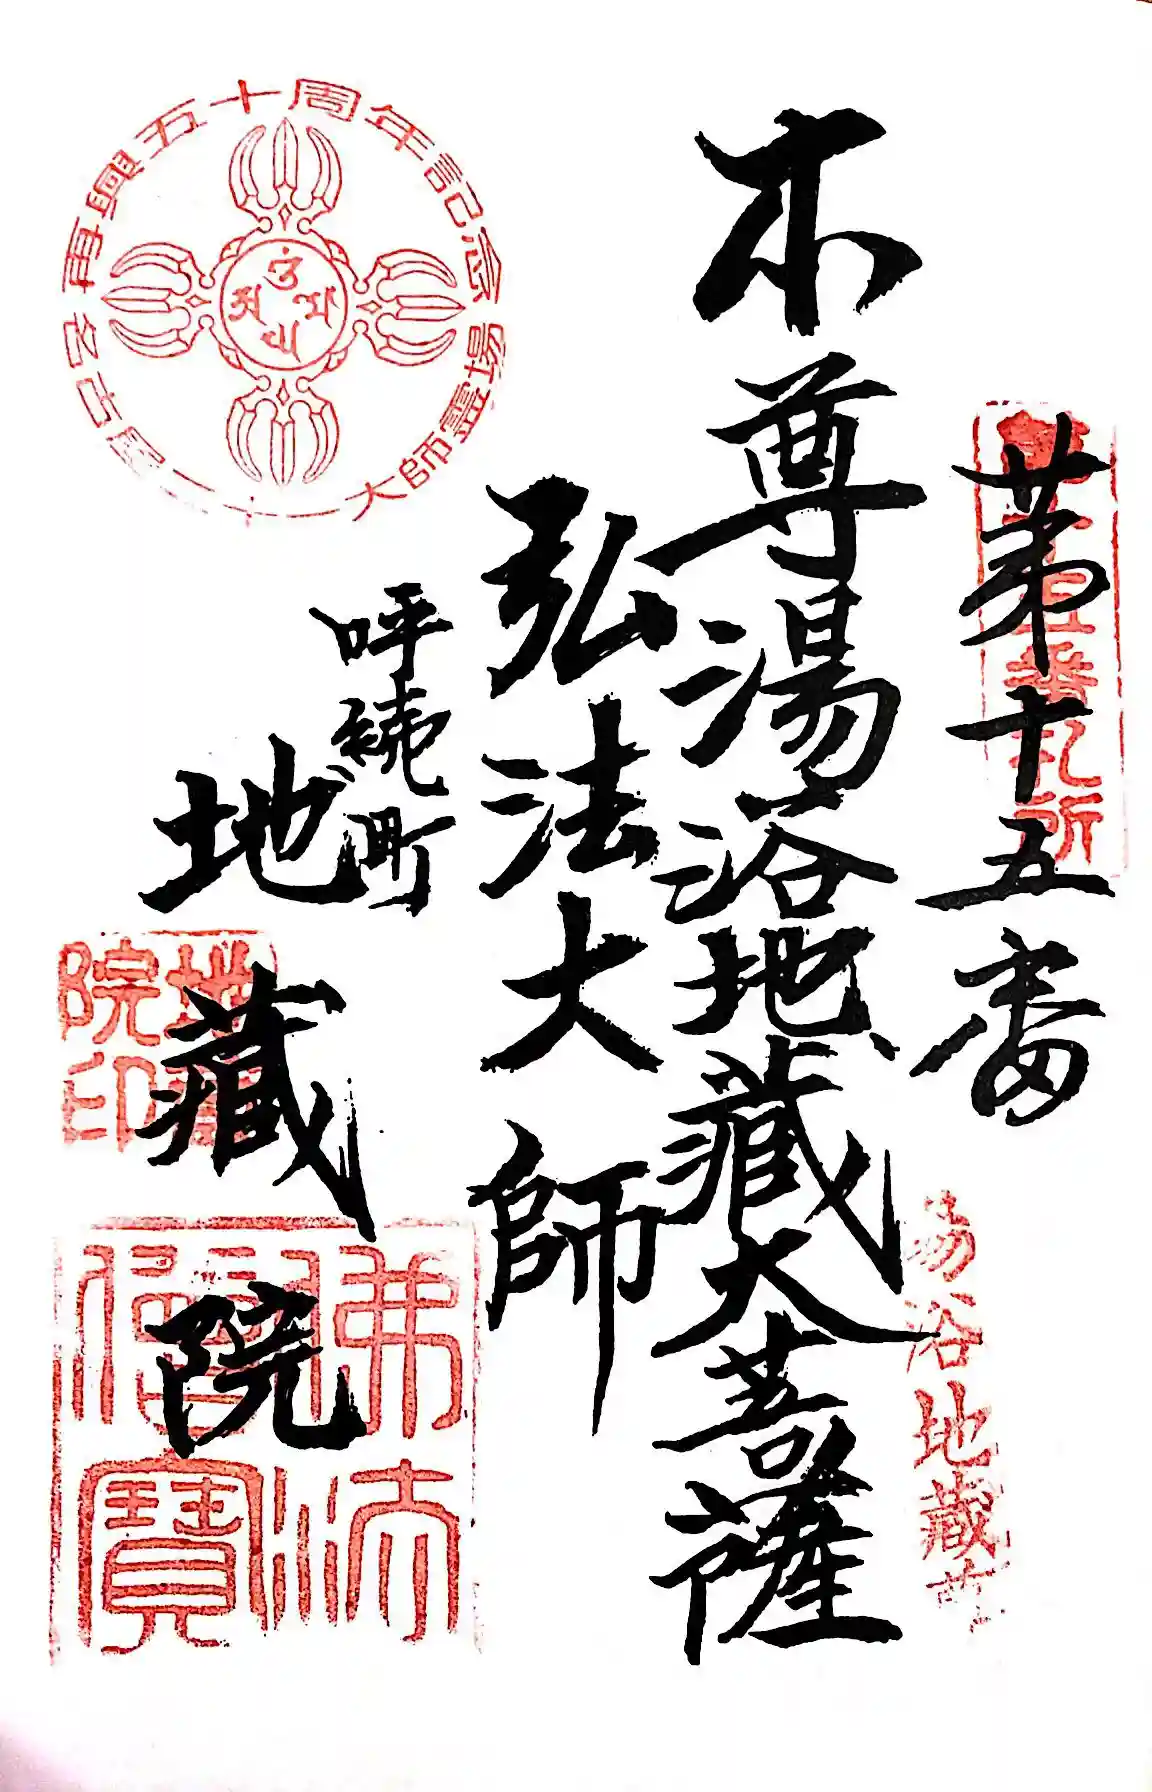 第十五番
本尊湯浴地蔵大菩薩
弘法大師
呼続町
地蔵院
再興五十周年記念
名古屋二十一大師霊場
十五番札所
湯浴地蔵
地蔵院印
佛法僧寶